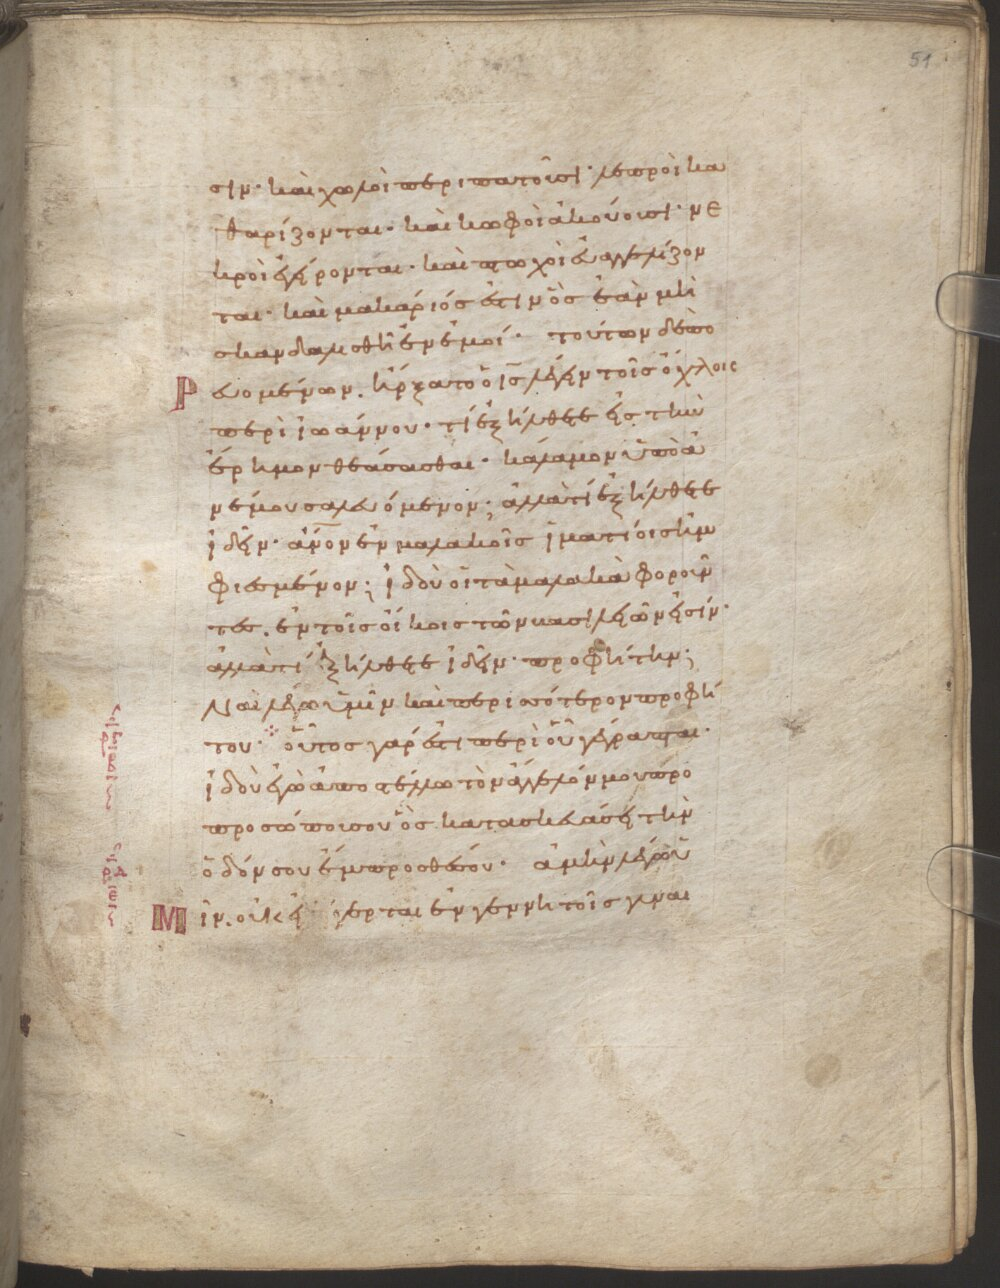 51
σιν· καὶ χωλοὶ περιπατοῦσι· λεπροὶ κα
θαρίζονται· καὶ κωφοὶ ἀκούουσι· νε
κροὶ ἐγείρονται· καὶ πτωχοὶ εὐαγγελίζον
ται· καὶ μακάριός ἐστιν ὃς ἐὰν μὴ
σκανδαλισθῆ ἐν ἐμοί· τούτων δὲ πο
Ρ ευομένων. ἤρξατο ὁ ις λέγειν τοῖς ὄχλοις
περὶ ἰωάννου· τί ἐξήλθετε εἰς τὴν
ἔρημον θεάσασθαι· κάλαμον ὑπὸ ἀ
νέμου σαλευόμενον; ἀλλὰ τί ἐξήλθετε
ἰδεῖν· ανον ἐν μαλακοῖς ἱματίοις ἠμ
φιεσμένον; ἰδοὺ οἱ τὰ μαλακὰ φοροῦν
τες. ἐν τοῖς οἴκοις τῶν βασιλέων εἰσίν·
ἀλλὰ τί ἐξήλθετε ἰδεῖν· προφήτην;
Ναὶ λέγω ὑμῖν καὶ περισσότερον προφή
του· οὗτος γάρ ἐστι περὶ οὗ γέγραπται·
ἰδοὺ ἐγὼ ἀποστέλλω τὸν ἄγγελόν μου πρὸ
προσώπου σου ὃς κατασκευάσει τὴν
ὁδόν σου ἔμπροσθέν σου· ἀμὴν λέγω ὑ
Μ ῖν. οὐκ ἐγήγερται ἐν γεννητοῖς γυναι